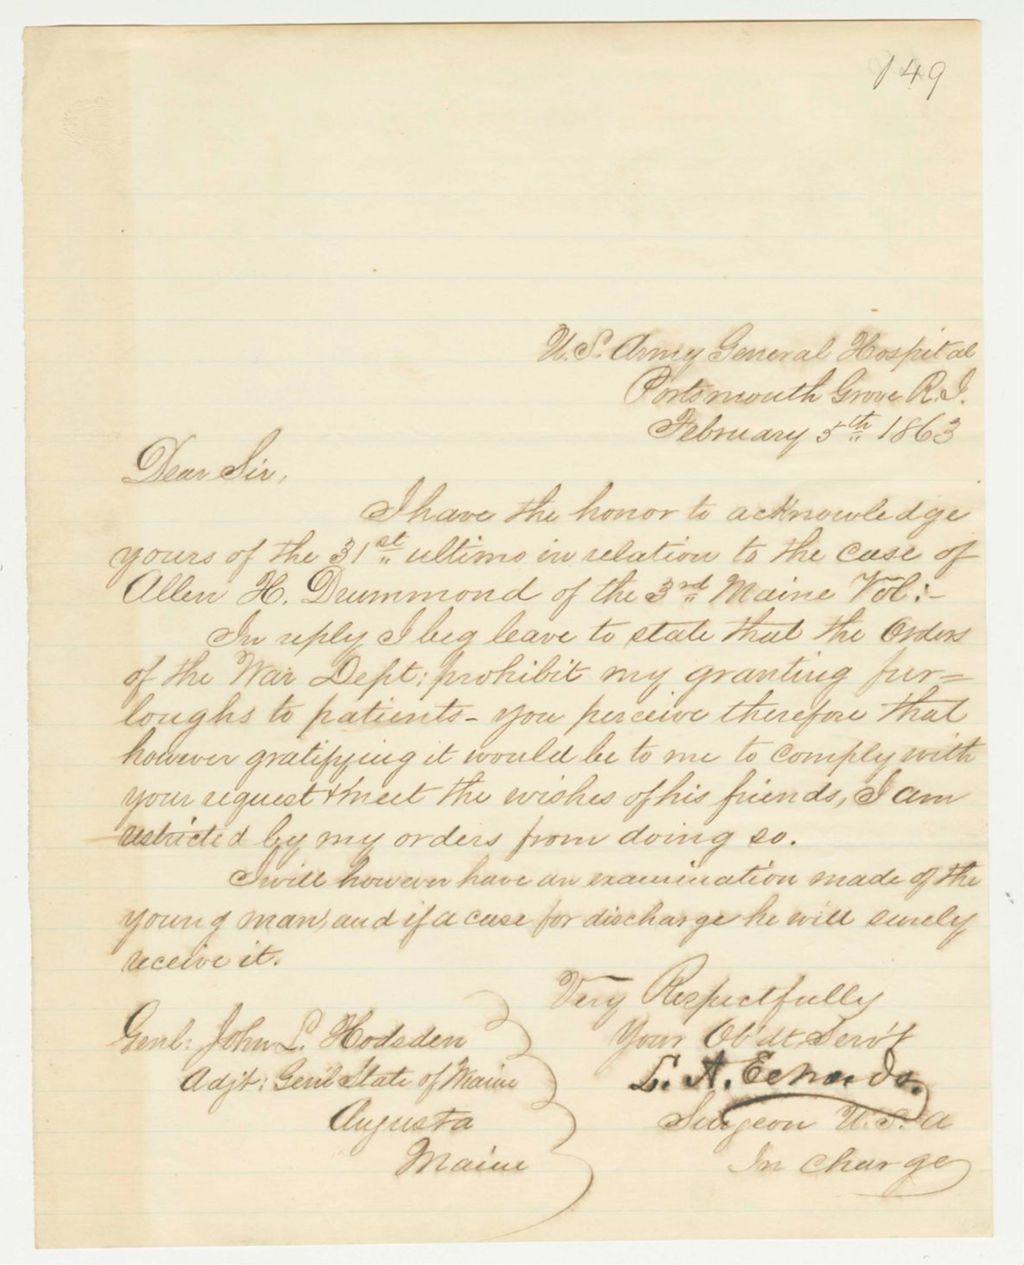 149
U.S. Army General Hospital
Portsmouth Grove R.I.
February 5th 1863
Dear Sir,
I have the honor to acknowledge
yours of the 31st ultimo in relation to the case of
Allen H. Drummond of the 3rd Maine Vol:-
In reply I beg leave to state that the Orders
of the War Dept: prohibit my granting fur=
loughs to patients - you perceive therefore that
however gratifying it would be to me to comply with
your request & meet the wishes of his friends, I am
restricted by my orders from doing so.
I will however have an examination made of the
young man, and if a case for discharge he will surely
receive it.
Very Respectfully
Your Ob'dt Serv't
L. A. Edwards.
Surgeon U.S.A
In charge
Genl: John L. Hodsden
Adjt: Genl State of Maine
Augusta
Maine